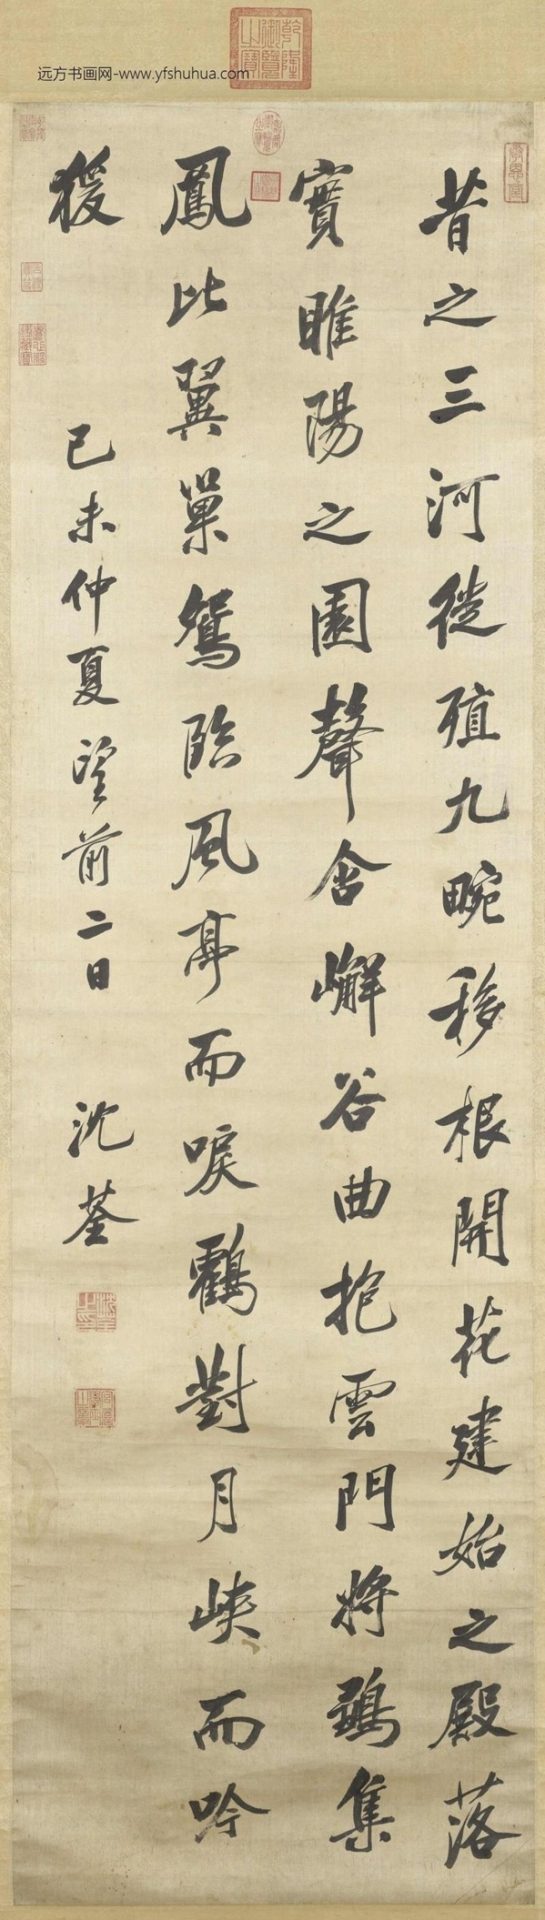 乾隆御覽之寶
远方书画网-www.yfshuhua.com
昔之三河徙殖九畹移根開花建始之殿落
實睢陽之園聲含嶰谷曲抱雲門將鶵集
鳳比翼巢鴛臨風亭而唳鶴對月峽而吟
猨
己未仲夏望前二日 沈荃